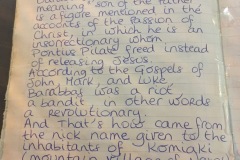 meaning "son of the father"
is a figure mentioned in the
accounts of the Passion of
Christ, in which he is an
insurrectionary whom
Pontius Pilate freed instead
of releasing Jesus.
According to the Gospels of
John, Mark, and Luke
Barabbas was a riot
a bandit in other words
a revolutionary.
And That's how came from
the nick name given to the
inhabitants of Komiaki
(mountain village